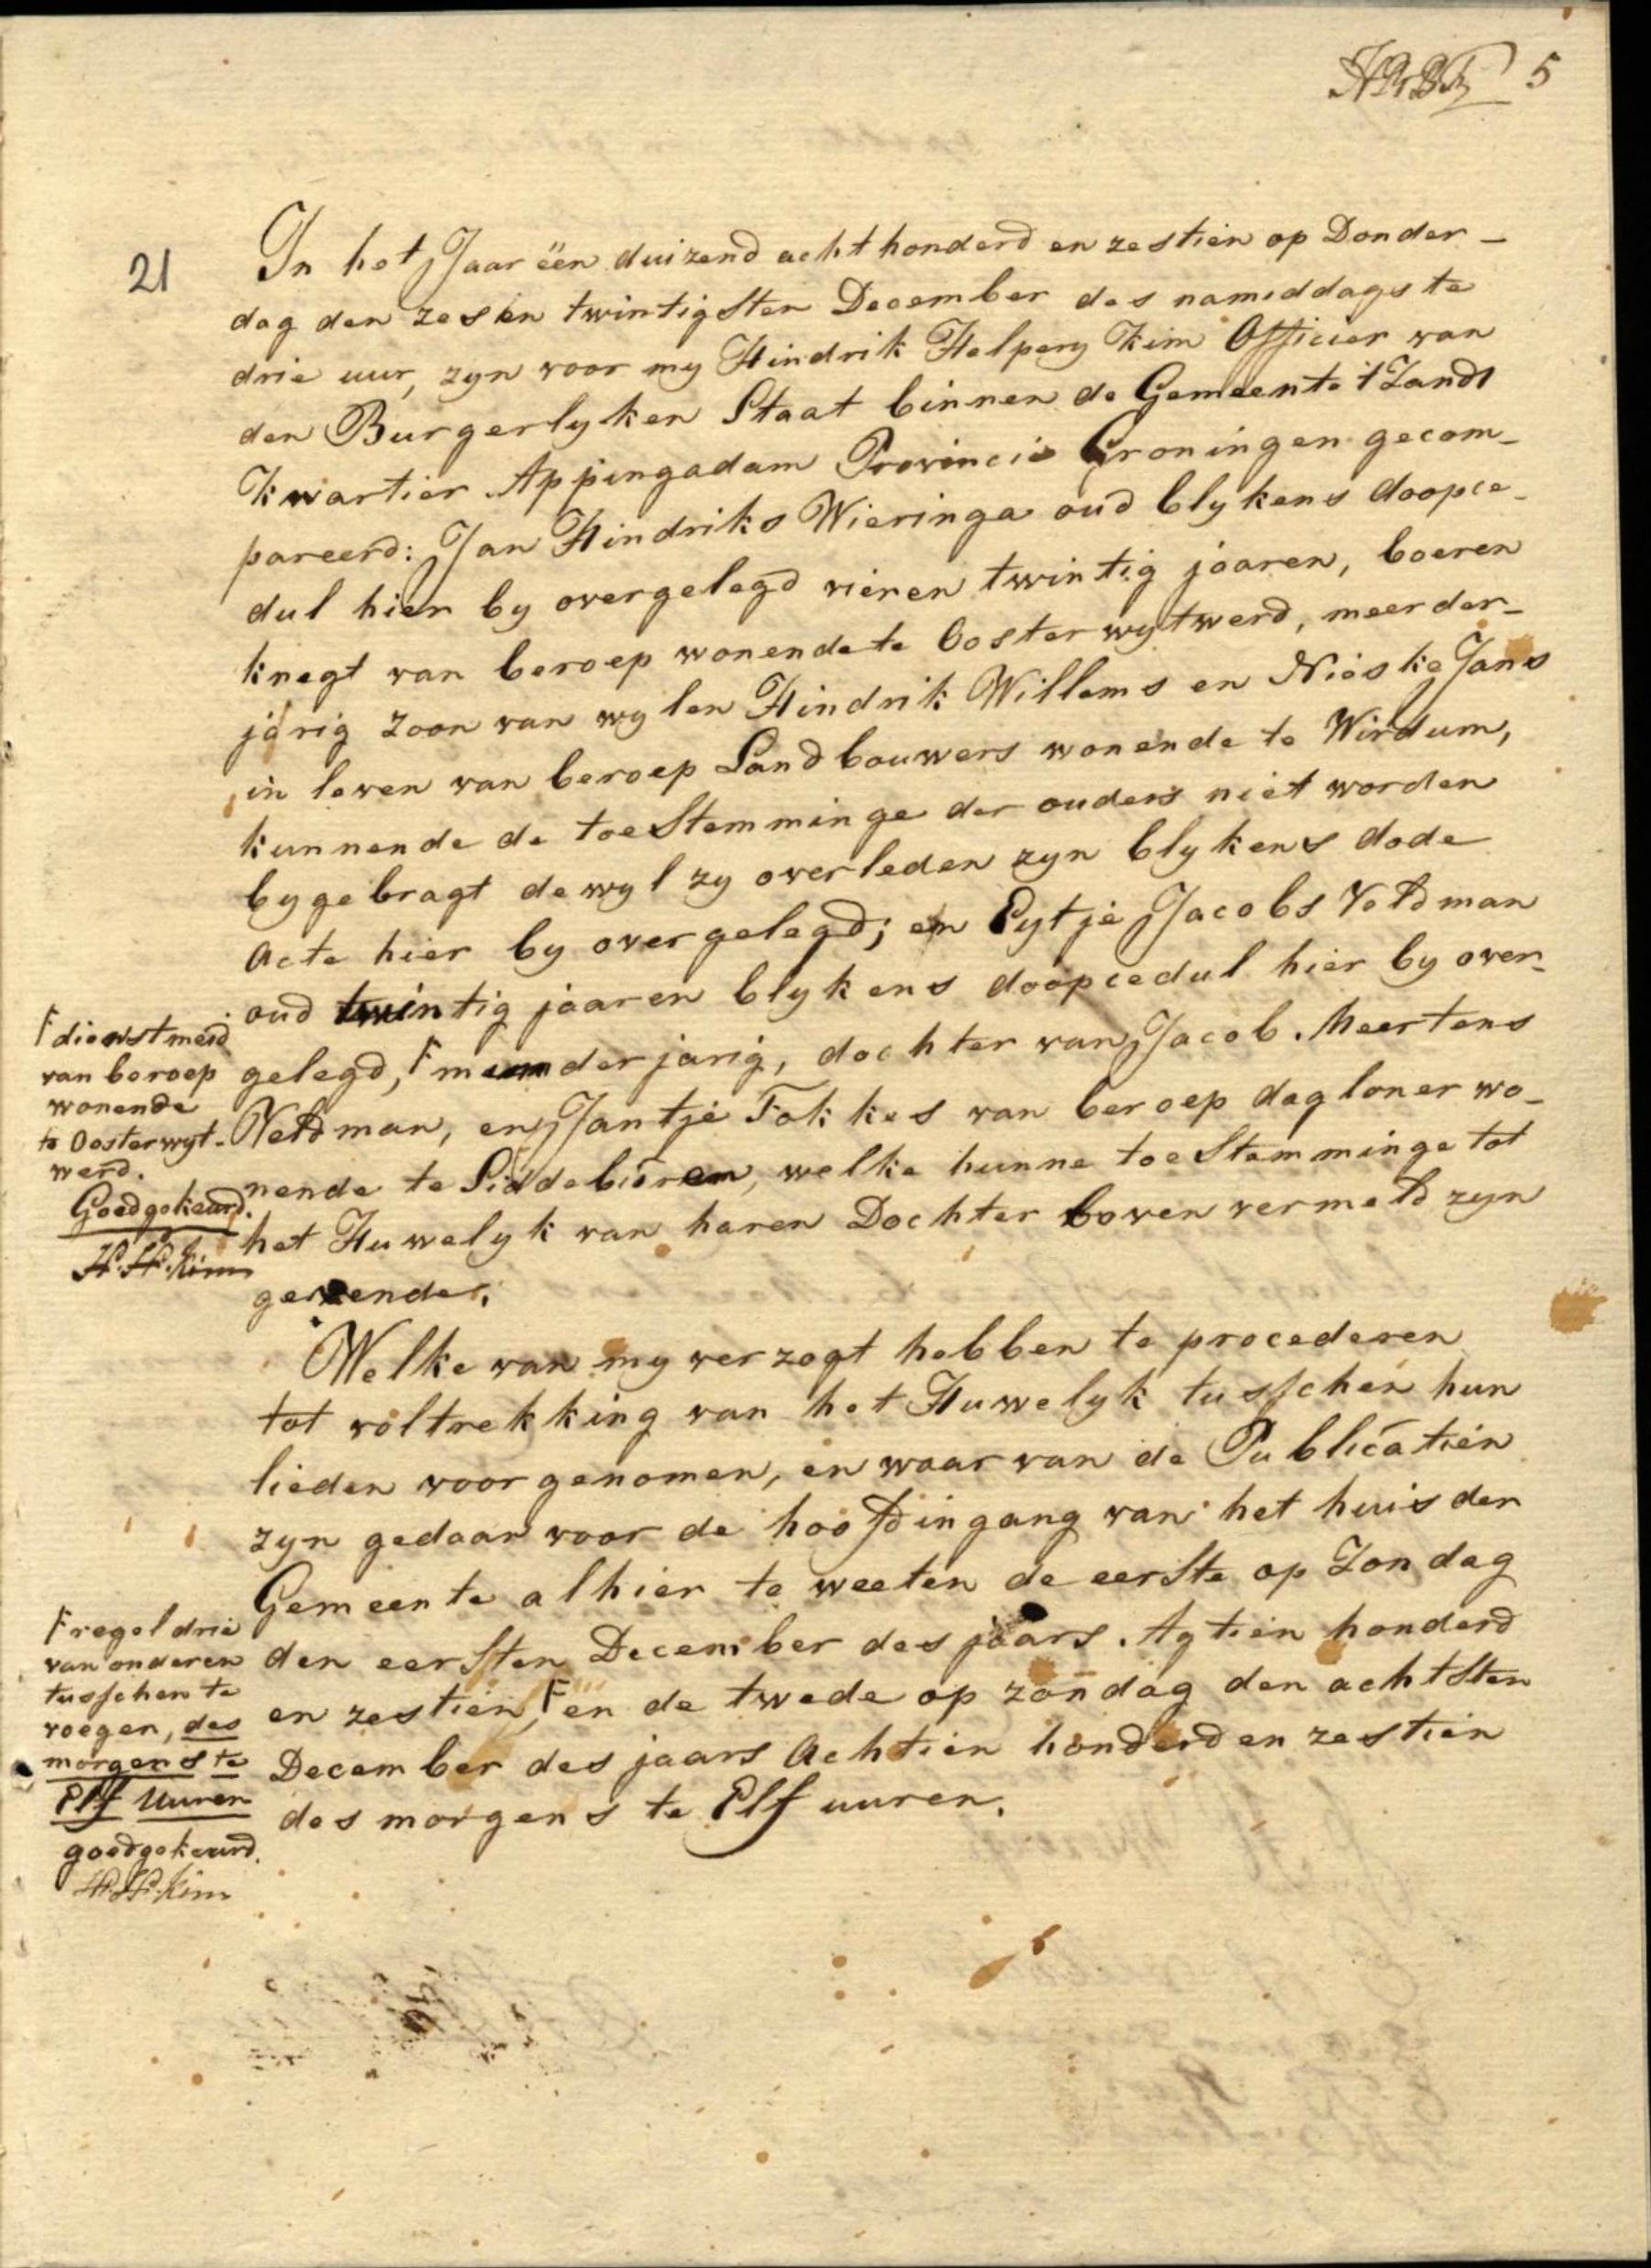 5
21
In het Jaar één duizend acht honderd en zestien op Donder-
dag den zes en twintigsten December des namiddags te
drie uur, zyn voor my Hindrik Helpery Kim Officier van
den Burgerlyken Staat binnen de Gemeente 't Zandt
Kwartier Appingadam Provincie Groningen gecom-
pareerd: Jan Hindriks Wieringa oud blykens doopce-
dul hier by overgelegd vieren twintig jaaren, boeren
knegt van beroep wonende te Oosterwytwerd, meerder-
jarig zoon van wylen Hindrik Willems en Nieske Jans
in leven van beroep Landbouwers wonende te Wirdum,
kunnende de toestemminge der ouders niet worden
bygebragt dewyl zy overleden zyn blykens dode
Acte hier by overgelegd; en Eytje Jacobs Veldman
oud twintig jaaren blykens doopcedul hier by over-
gelegd, F minderjarig, dochter van Jacob Meertens
Veldman, en Jantje Fokkes van beroep dagloner wo-
nende te Siddebüren, welke hunne toestemminge tot
het Huwelyk van haren Dochter boven vermeld zyn
gevende.
F dienstmeid
van beroep
wonende
te Oosterwyt-
werd.
Goedgekeurd.
H. H. Kim
Welke van my verzogt hebben te procederen
tot voltrekking van het Huwelyk tusschen hun
lieden voorgenomen, en waar van de Publicatien
zyn gedaan voor de hoofdingang van het huis der
Gemeente alhier te weeten de eerste op Zondag
den eersten December des jaars Agtien honderd
en zestien, F en de twede op zondag den achtsten
December des jaars Achtien honderd en zestien
des morgens te Elf uuren.
F regel drie
van onderen
tusschen te
voegen, des
morgens te
Elf Uuren
goedgekeurd.
H. H. Kim